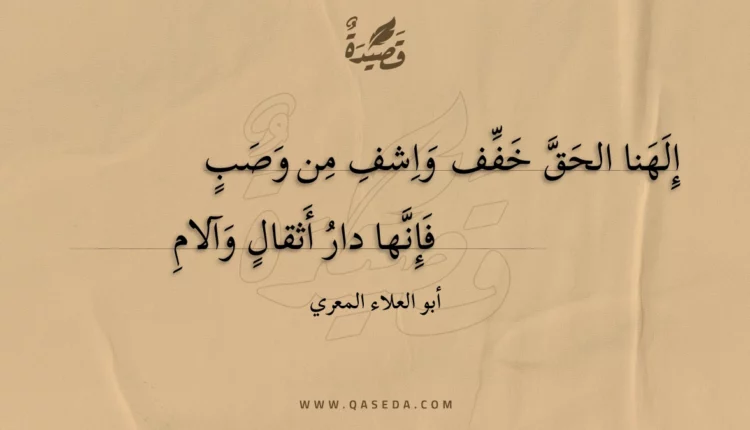 قَصِيْدَةٌ
إِلَهَنا الحَقَّ خَفِّف وَاِشفِ مِن وَصَبٍ
فَإِنَّها دارُ أَثقالٍ وَآلامِ
أبو العلاء المعري
WWW.QASEDA.COM